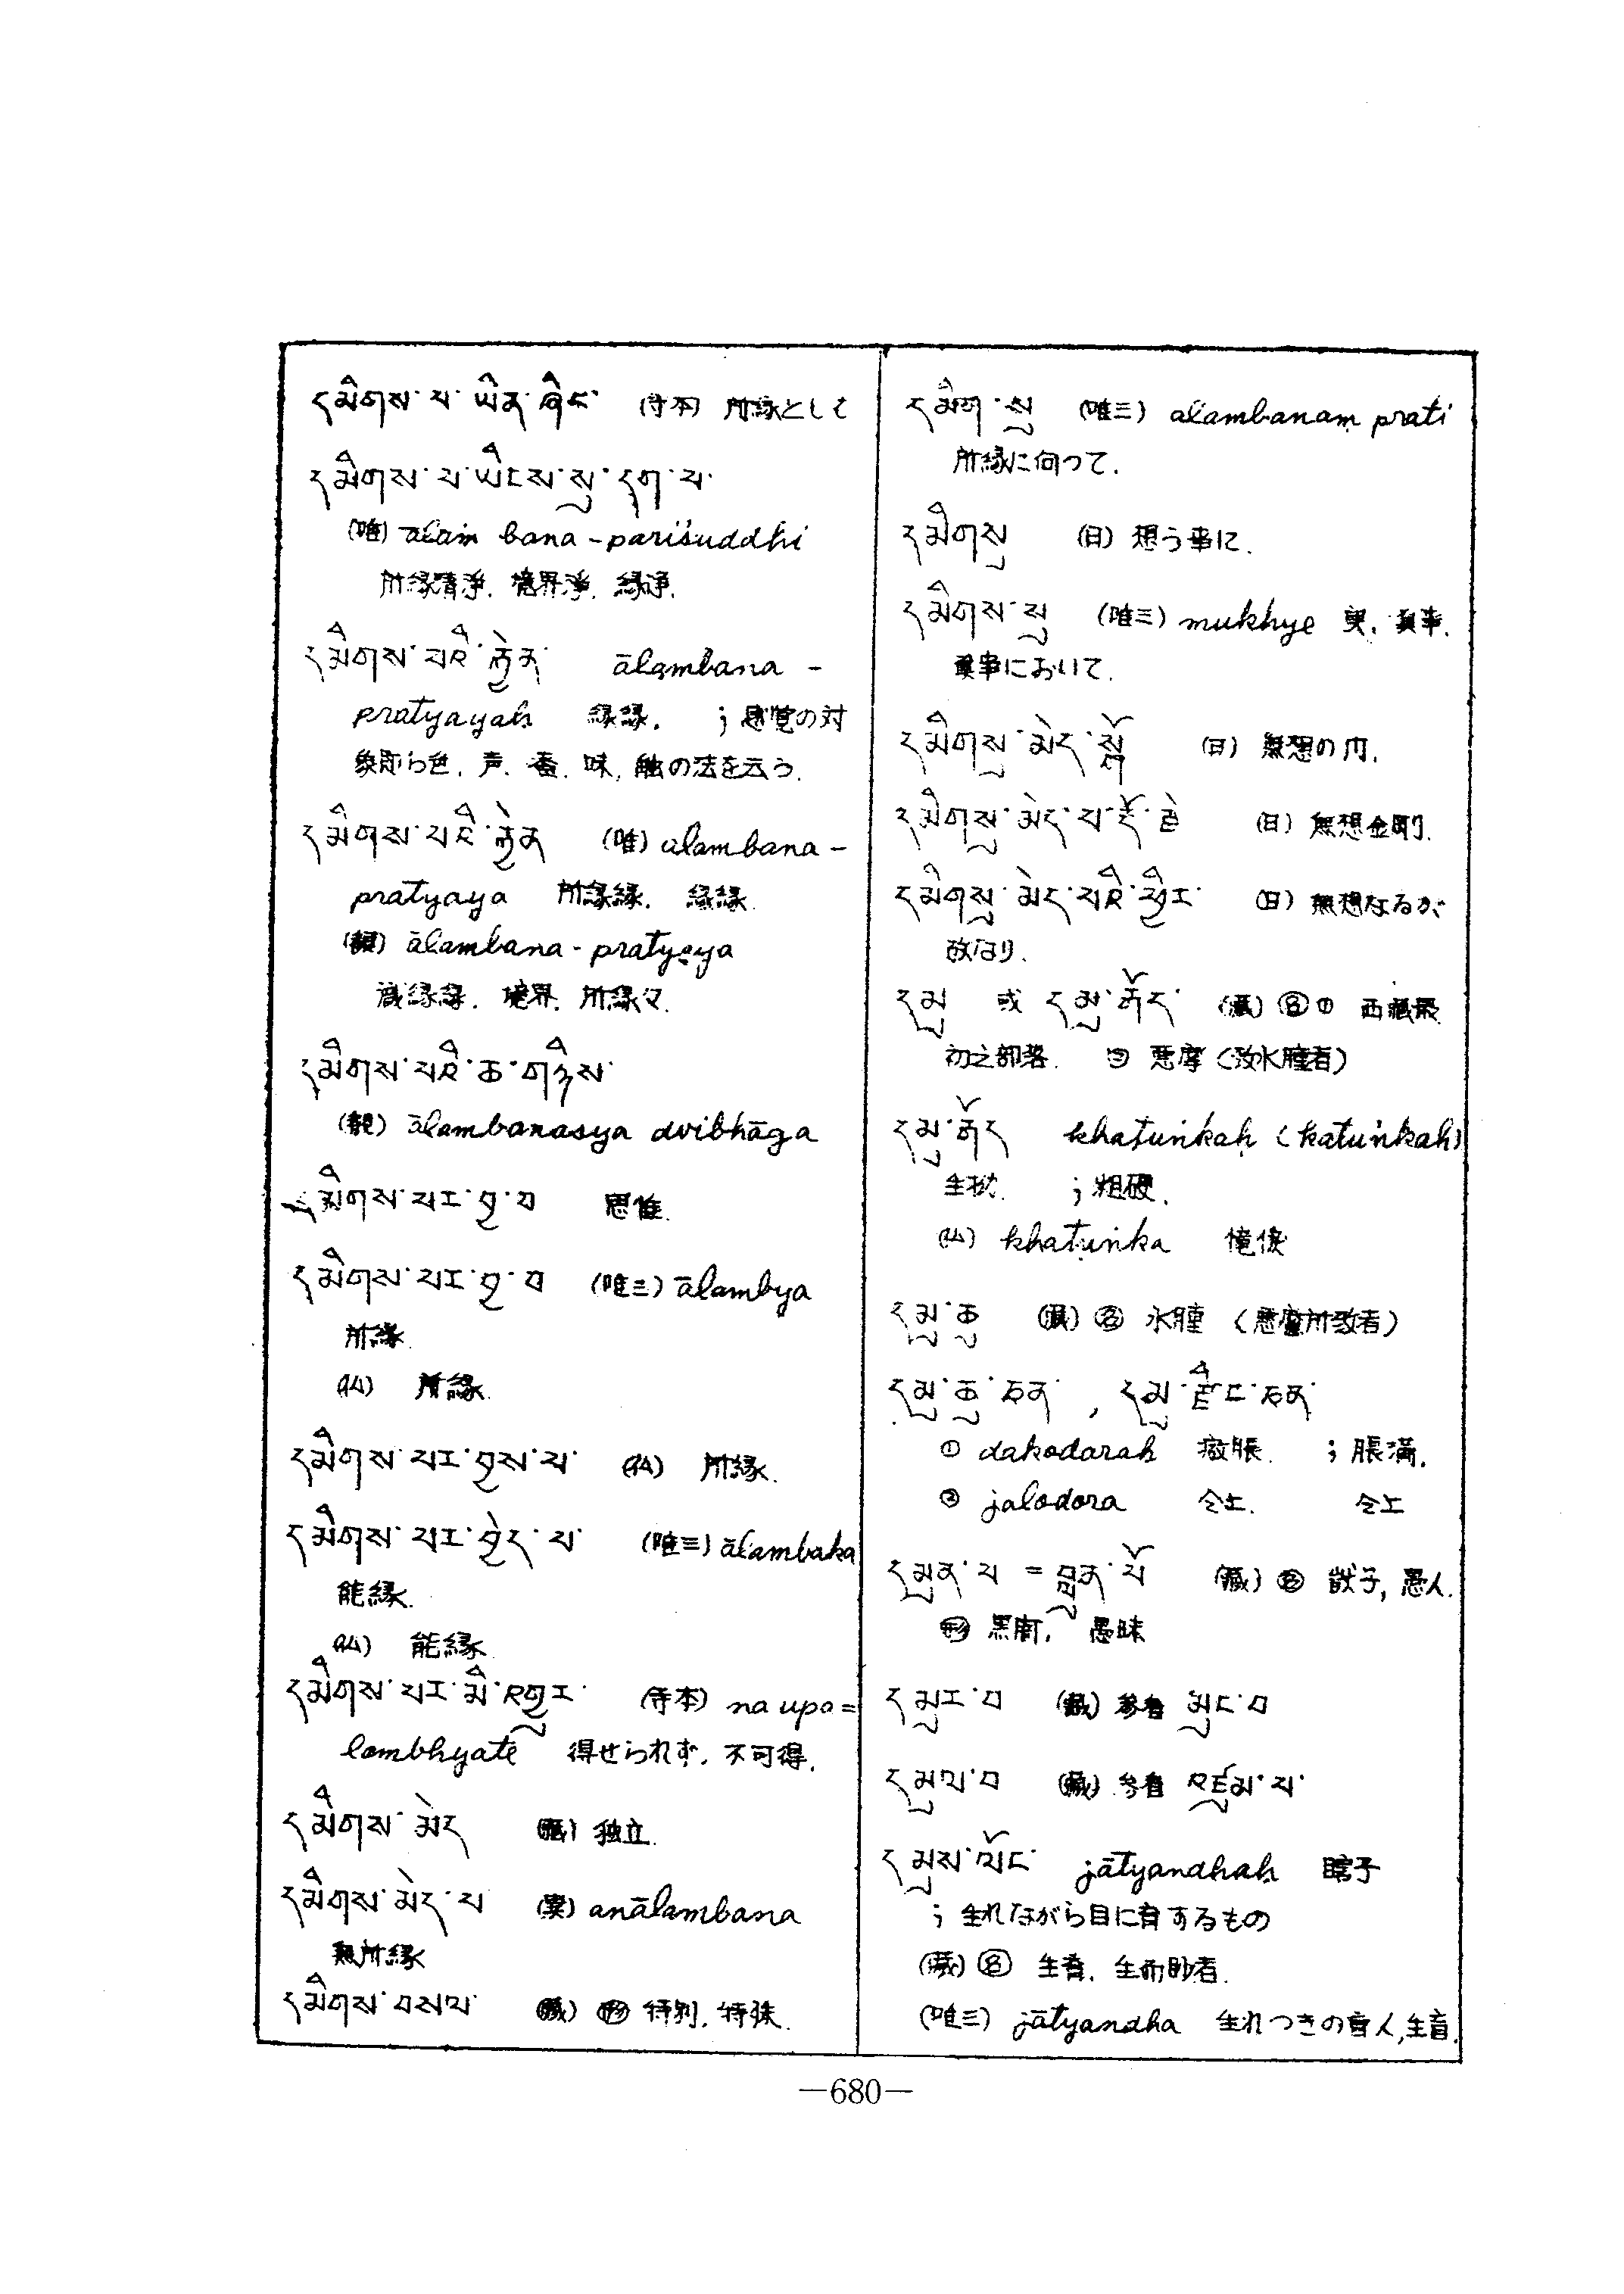 དམིགས་པ་ཡིན་ཞིང་ (寺本) 所縁として
དམིགས་པ་ཡོངས་སུ་དག་པ་
(唯) ālambana-pariśuddhi
所縁清浄. 境界浄. 縁浄.
དམིགས་པའི་རྐྱེན་ ālambana-
pratyayaḥ 縁縁. ; 感覚の対
象即ち色. 声. 香. 味. 触の法を云う.
དམིགས་པའི་རྐྱེན (唯) ālambana-
pratyaya 所縁縁. 縁縁.
ālambana-pratyaya
識縁縁. 境界. 所縁々.
དམིགས་པའི་ཆ་གཉིས་
ālambanasya dvibhāga
དམིགས་པར་བྱ་བ 思惟.
དམིགས་པར་བྱ་བ (唯三) ālambya
所縁.
所縁.
དམིགས་པར་བྱས་པ་ 所縁.
དམིགས་པར་བྱེད་པ་ (唯三) ālambaka
能縁.
能縁.
དམིགས་པར་མི་འགྱུར་ (寺本) na upa=
lambhyate 得せられず. 不可得.
དམིགས་མེད (蔵) 独立.
དམིགས་མེད་པ anālambana
無所縁
དམིགས་བསལ་ (蔵) ㊒ 特別. 特殊.
དམིག་སུ (唯三) ālambanaṃ prati
所縁に向って.
དམིགསུ (日) 想う事に.
དམིགས་སུ (唯三) mukhye 実. 真事.
真事において.
དམིགསུ་མེད་སྒོ (日) 無想の门.
དམིགསུ་མེད་པ་རྡོ་རྗེ (日) 無想金剛.
དམིགསུ་མེད་པའི་ཕྱིར་ (日) 無想なるが
故なり.
དམུ 或 དམུ་རྒོད་ (蔵) ㊔① 西蔵最
初之部落. ② 悪摩 (致水腫者)
དམུ་རྒོད khaṭuṅkaḥ (kaṭuṅkaḥ)
生拗. ; 粗硬.
khaṭuṅka 𢤱悷
དམུ་ཆུ (蔵) ㊔ 水腫 (悪魔所致者)
དམུ་ཆུ་ཅན་ , དམུ་རྫིང་ཅན་
① dakodaraḥ 癥脹. ; 脹満.
② jalodora 仝上. 仝上
དམུན་པ = བླུན་པོ (蔵) ㊔ 獃子, 愚人.
㊒ 黒闇. 愚昧
དམུར་བ (蔵) 参看 མུར་བ
དམུལ་བ (蔵) 参看 འཛུམ་པ་
དམུས་ལོང་ jātyandhaḥ 瞎子
; 生れながら目に盲するもの
(蔵) ㊔ 生盲. 生而眇者.
(唯三) jātyandha 生れつきの盲人,生盲.
—680—